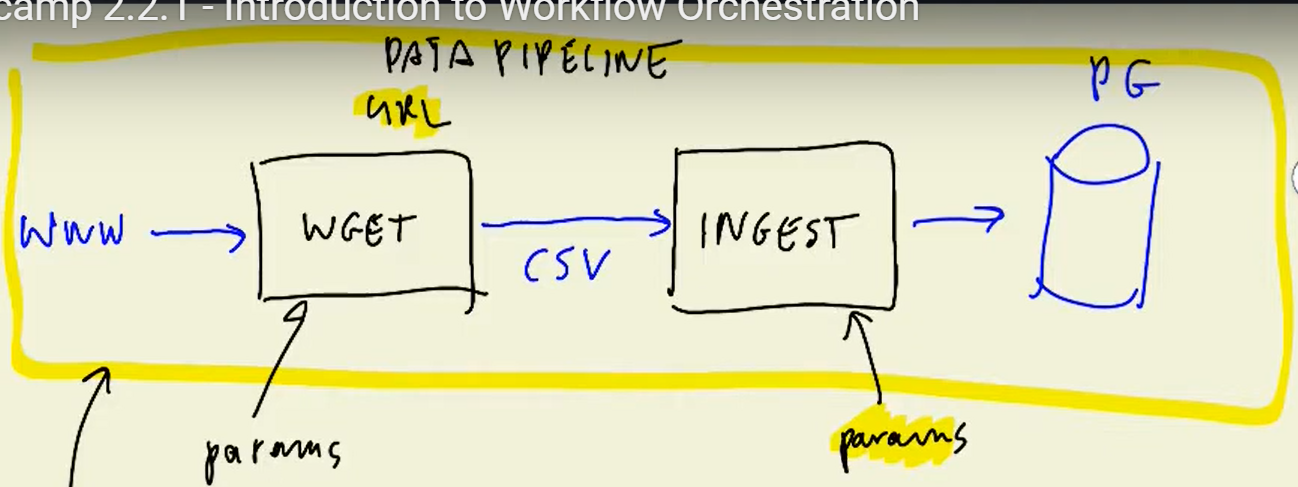 camp 2.2.1 - Introduction to Workflow Orchestration
DATA PIPELINE
PG
URL
WWW
WGET
CSV
INGEST
params
params